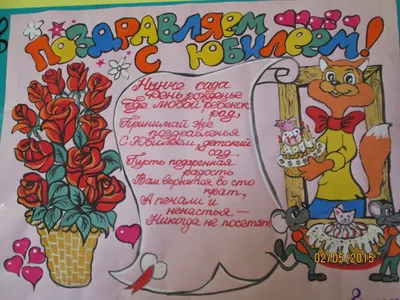 ПОЗДРАВЛЯЕМ
С ЮБИЛЕЕМ!
Нынче сада
День рожденье
Где любой ребенок
рад,
Принимай же
поздравленья
С Юбилеем, детский
сад...
Пусть подаренная
радость
Вам вернется во сто
крат,
А печали и
ненастья —
Никогда не посетят
02/05/2015